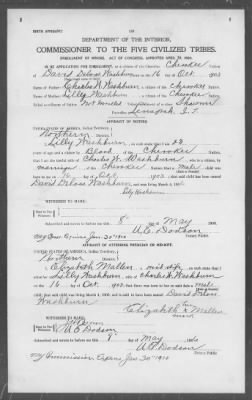 BIRTH AFFIDAVIT.
DEPARTMENT OF THE INTERIOR,
COMMISSIONER TO THE FIVE CIVILIZED TRIBES.
ENROLLMENT OF MINORS. ACT OF CONGRESS, APPROVED APRIL 26, 1906.
IN RE APPLICATION FOR ENROLLMENT, as a citizen of the Cherokee Nation,
of David Deloss Washburn, born on the 16 day of Oct 1903
Name of Father: Charles W. Washburn a citizen of the Cherokee Nation.
Name of Mother: Lilly Washburn a citizen of the Cherokee Nation.
Postoffice Lenapah, I.T.
AFFIDAVIT OF MOTHER.
UNITED STATES OF AMERICA, Indian Territory,
Northern District.
I, Lilly Washburn, on oath state that I am 22
years of age and a citizen by Blood, of the Cherokee Nation;
that I am the lawful wife of Charles W. Washburn, who is a citizen, by
marriage of the Cherokee Nation; that a male child was
born to me on 16 day of Oct, 1903, that said child has been named
David Deloss Washburn, and was living March 4, 1906.
Lilly Washburn
WITNESSES TO MARK:
Subscribed and sworn to before me this 8" day of May, 1906.
My Com Expires Jan 30" 1910 U.E. Dodson
Notary Public.
AFFIDAVIT OF ATTENDING PHYSICIAN OR MIDWIFE.
UNITED STATES OF AMERICA, Indian Territory,
Northern District.
I, Elizabeth Mullen, a mid wife, on oath state that I
attended on Mrs. Lilly Washburn, wife of Charles W. Washburn
on the 16 day of Oct, 1903; that there was born to her on said date a male
child; that said child was living March 4, 1906, and is said to have been named David Deloss
Washburn
Elizabeth Mullen
WITNESSES TO MARK:
U.E. Dodson
Subscribed and sworn to before me this 8" day of May, 1906
U.E. Dodson
Notary Public.
My Commission Expires Jan 30" 1910